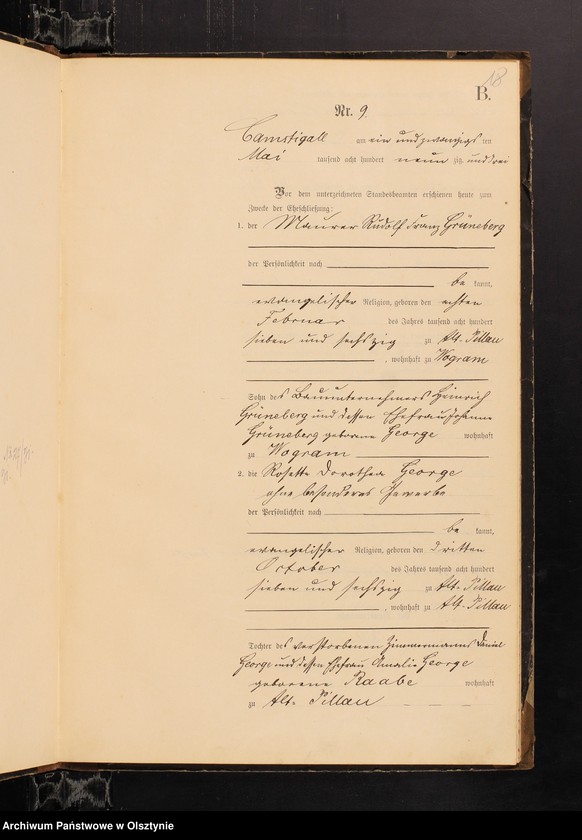 18
B.
Nr. 9.
Camstigall am ein und zwanzigsten
Mai tausend acht hundert neun zig und drei
Vor dem unterzeichneten Standesbeamten erschienen heute zum
Zwecke der Eheschließung:
1. der Maurer Rudolf Franz Grüneberg
der Persönlichkeit nach
be kannt,
evangelischer Religion, geboren den achten
Februar des Jahres tausend acht hundert
sieben und sechszig zu Alt-Pillau
, wohnhaft zu Wogram
Sohn des Bauunternehmers Heinrich
Grüneberg und dessen Ehefrau Johanne
Grüneberg geborene George wohnhaft
zu Wogram
2. die Rosette Dorothea George
ohne besonderes Gewerbe
der Persönlichkeit nach
be kannt,
evangelischer Religion, geboren den dritten
October des Jahres tausend acht hundert
sieben und sechszig zu Alt-Pillau
, wohnhaft zu Alt-Pillau
Tochter des verstorbenen Zimmermanns Daniel
George und dessen Ehefrau Amalie George
geborene Raabe wohnhaft
zu Alt-Pillau
Archiwum Państwowe w Olsztynie